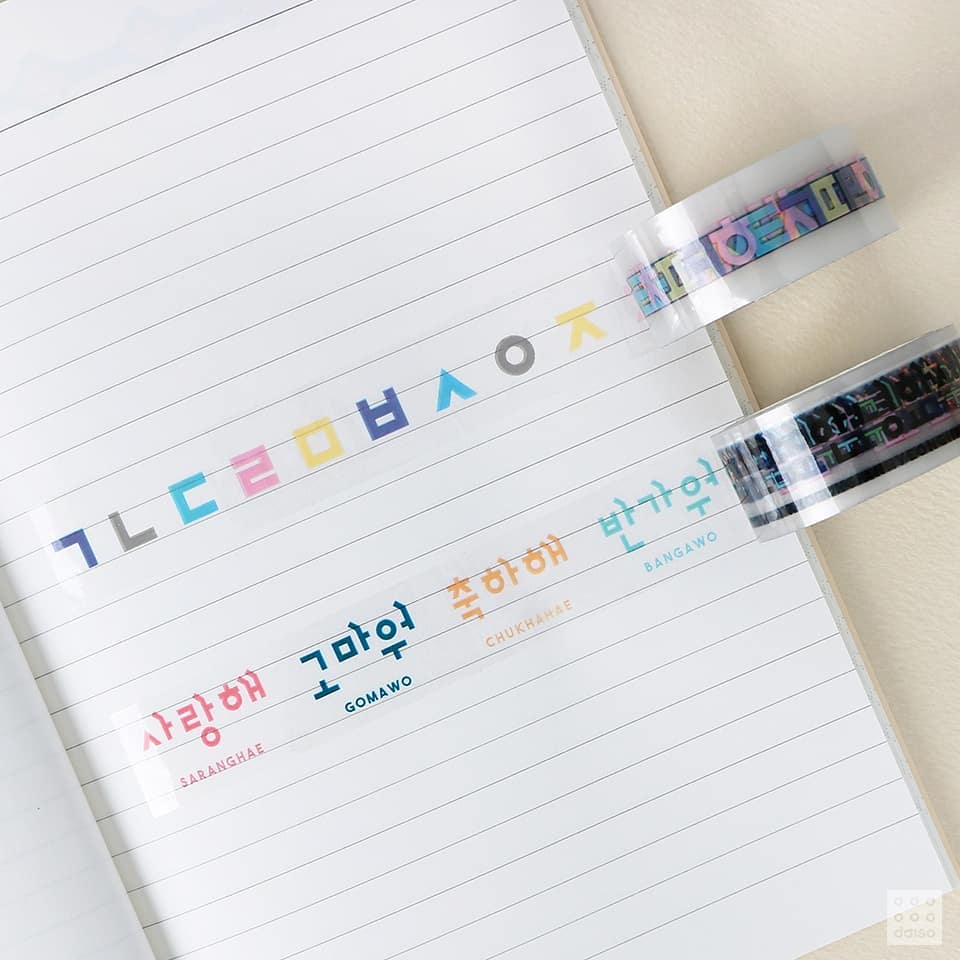 ㄱㄴㄷㄹㅁㅂㅅㅇㅈ
사랑해 고마워 축하해 반가워
SARANGHAE GOMAWO CHUKHAHAE BANGAWO
daiso